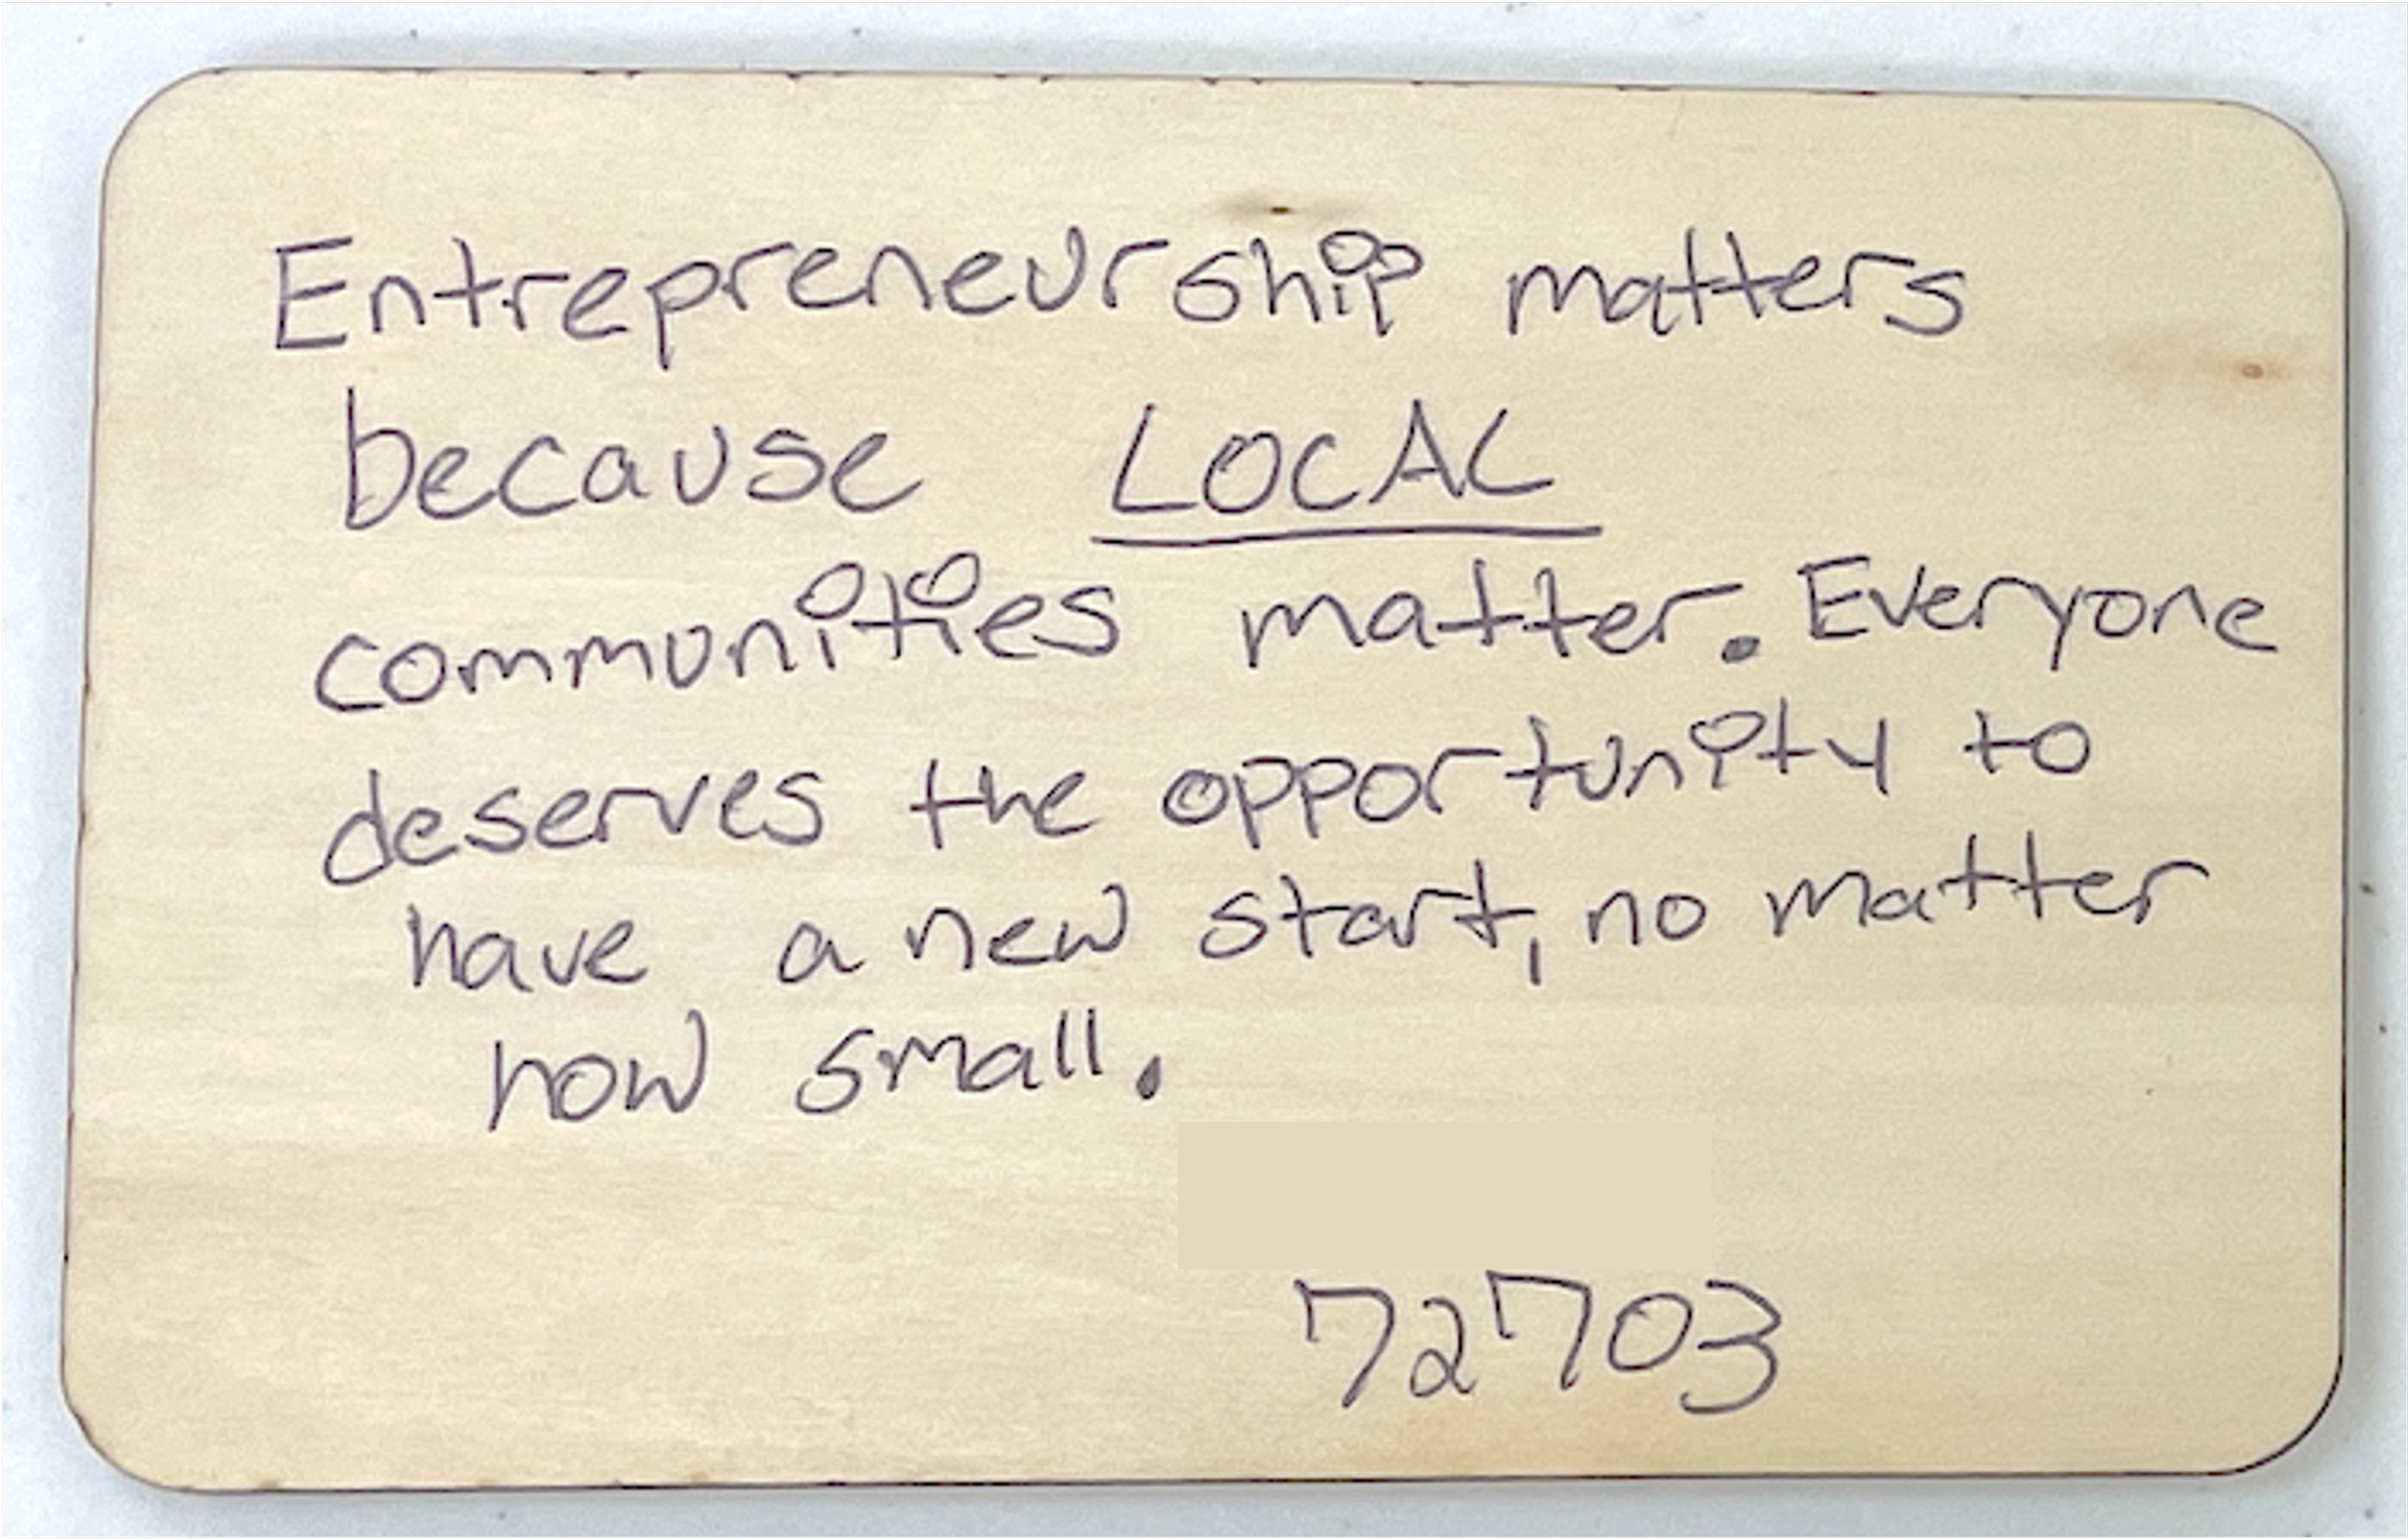 Entrepreneurship matters
because LOCAL
communities matter. Everyone
deserves the opportunity to
have a new start, no matter
how small.
72703